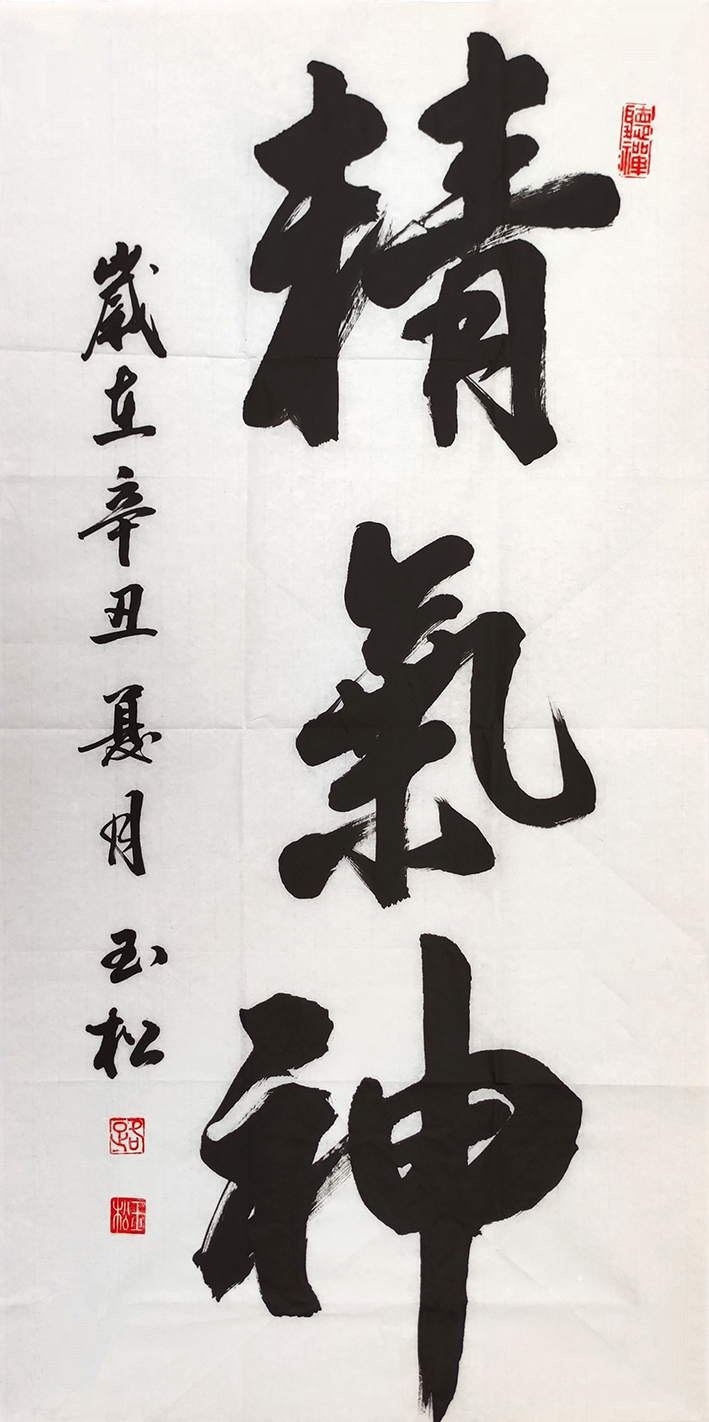 聽禪
精氣神
歲在辛丑夏月 玉松
路
玉松